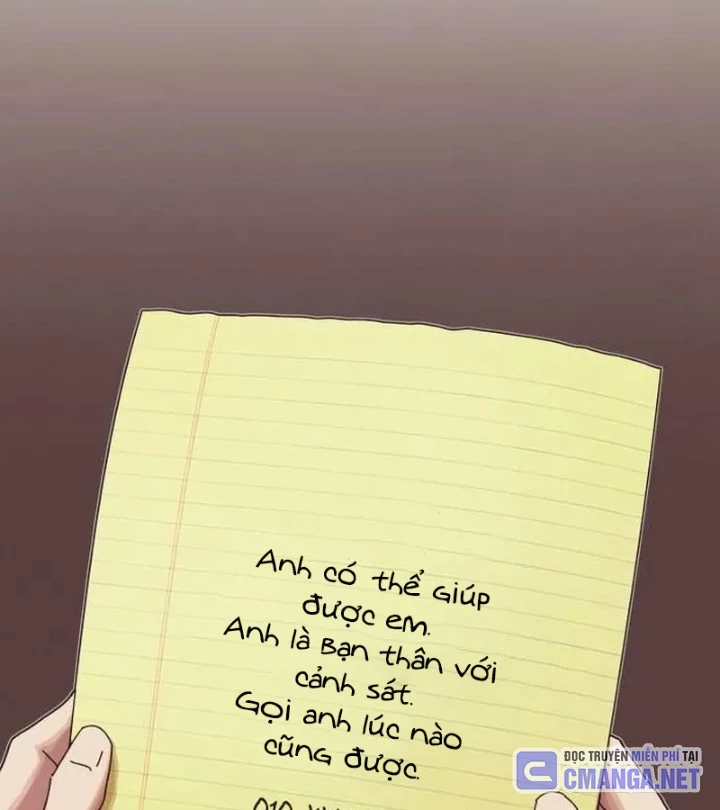 Anh có thể giúp
được em.
Anh là bạn thân với
cảnh sát.
Gọi anh lúc nào
cũng được.
ĐỌC TRUYỆN MIỄN PHÍ TẠI
CMANGA.NET